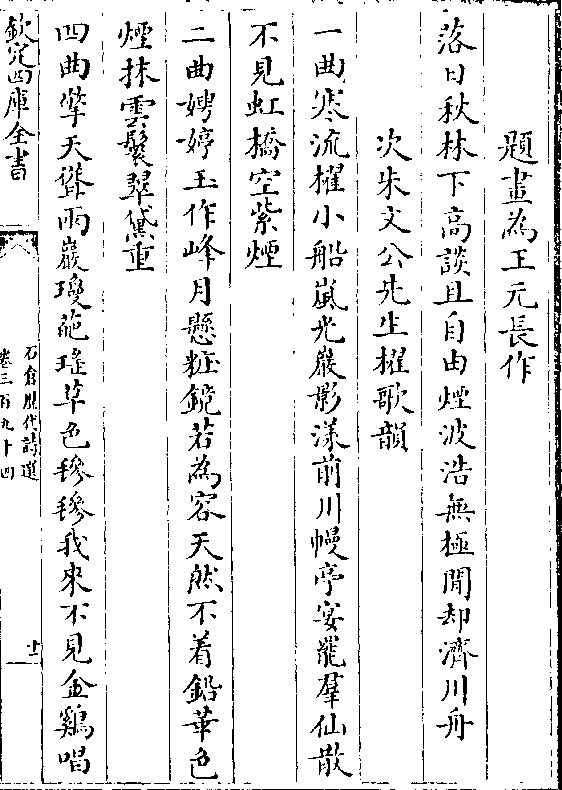 題畫為王元長作
落日秋林下高談且自由煙波浩無極閒却濟川舟
次朱文公先生櫂歌韻
一曲寒流櫂小船嵐光巖影漾前川幔亭宴罷羣仙散
不見虹橋空紫煙
二曲娉婷玉作峰月懸粧鏡若為容天然不着鉛華色
煙抹雲鬟翠黛重
四曲擎天聳兩巖瓊葩瑤草色毿毿我來不見金鷄唱
欽定四庫全書
石倉歷代詩選
卷三百九十四
十一